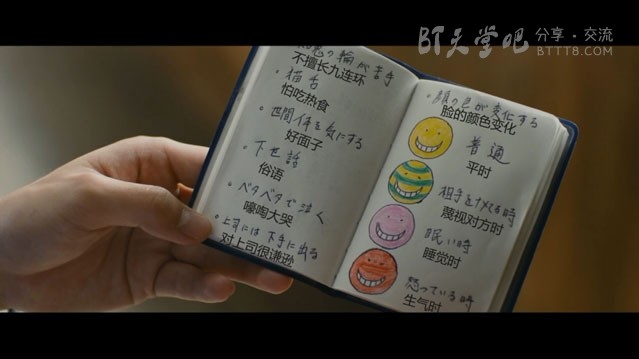 BT天堂吧 分享·交流
BTTT8.COM
知恵の輪が苦手
不擅长九连环
・猫舌
怕吃热食
・世間体を気にする
好面子
・下世話
俗语
・ベタベタで泣く
嚎啕大哭
・上司には下手に出る
对上司很谦逊
・顔の色が変化する
脸的颜色变化
普通
平时
相手をナメてる時
蔑视对方时
眠い時
睡觉时
怒っている時
生气时